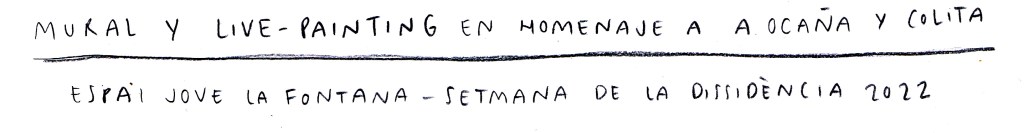 MURAL Y LIVE-PAINTING EN HOMENAJE A A. OCAÑA Y COLITA
ESPAI JOVE LA FONTANA - SETMANA DE LA DISSIDÈNCIA 2022